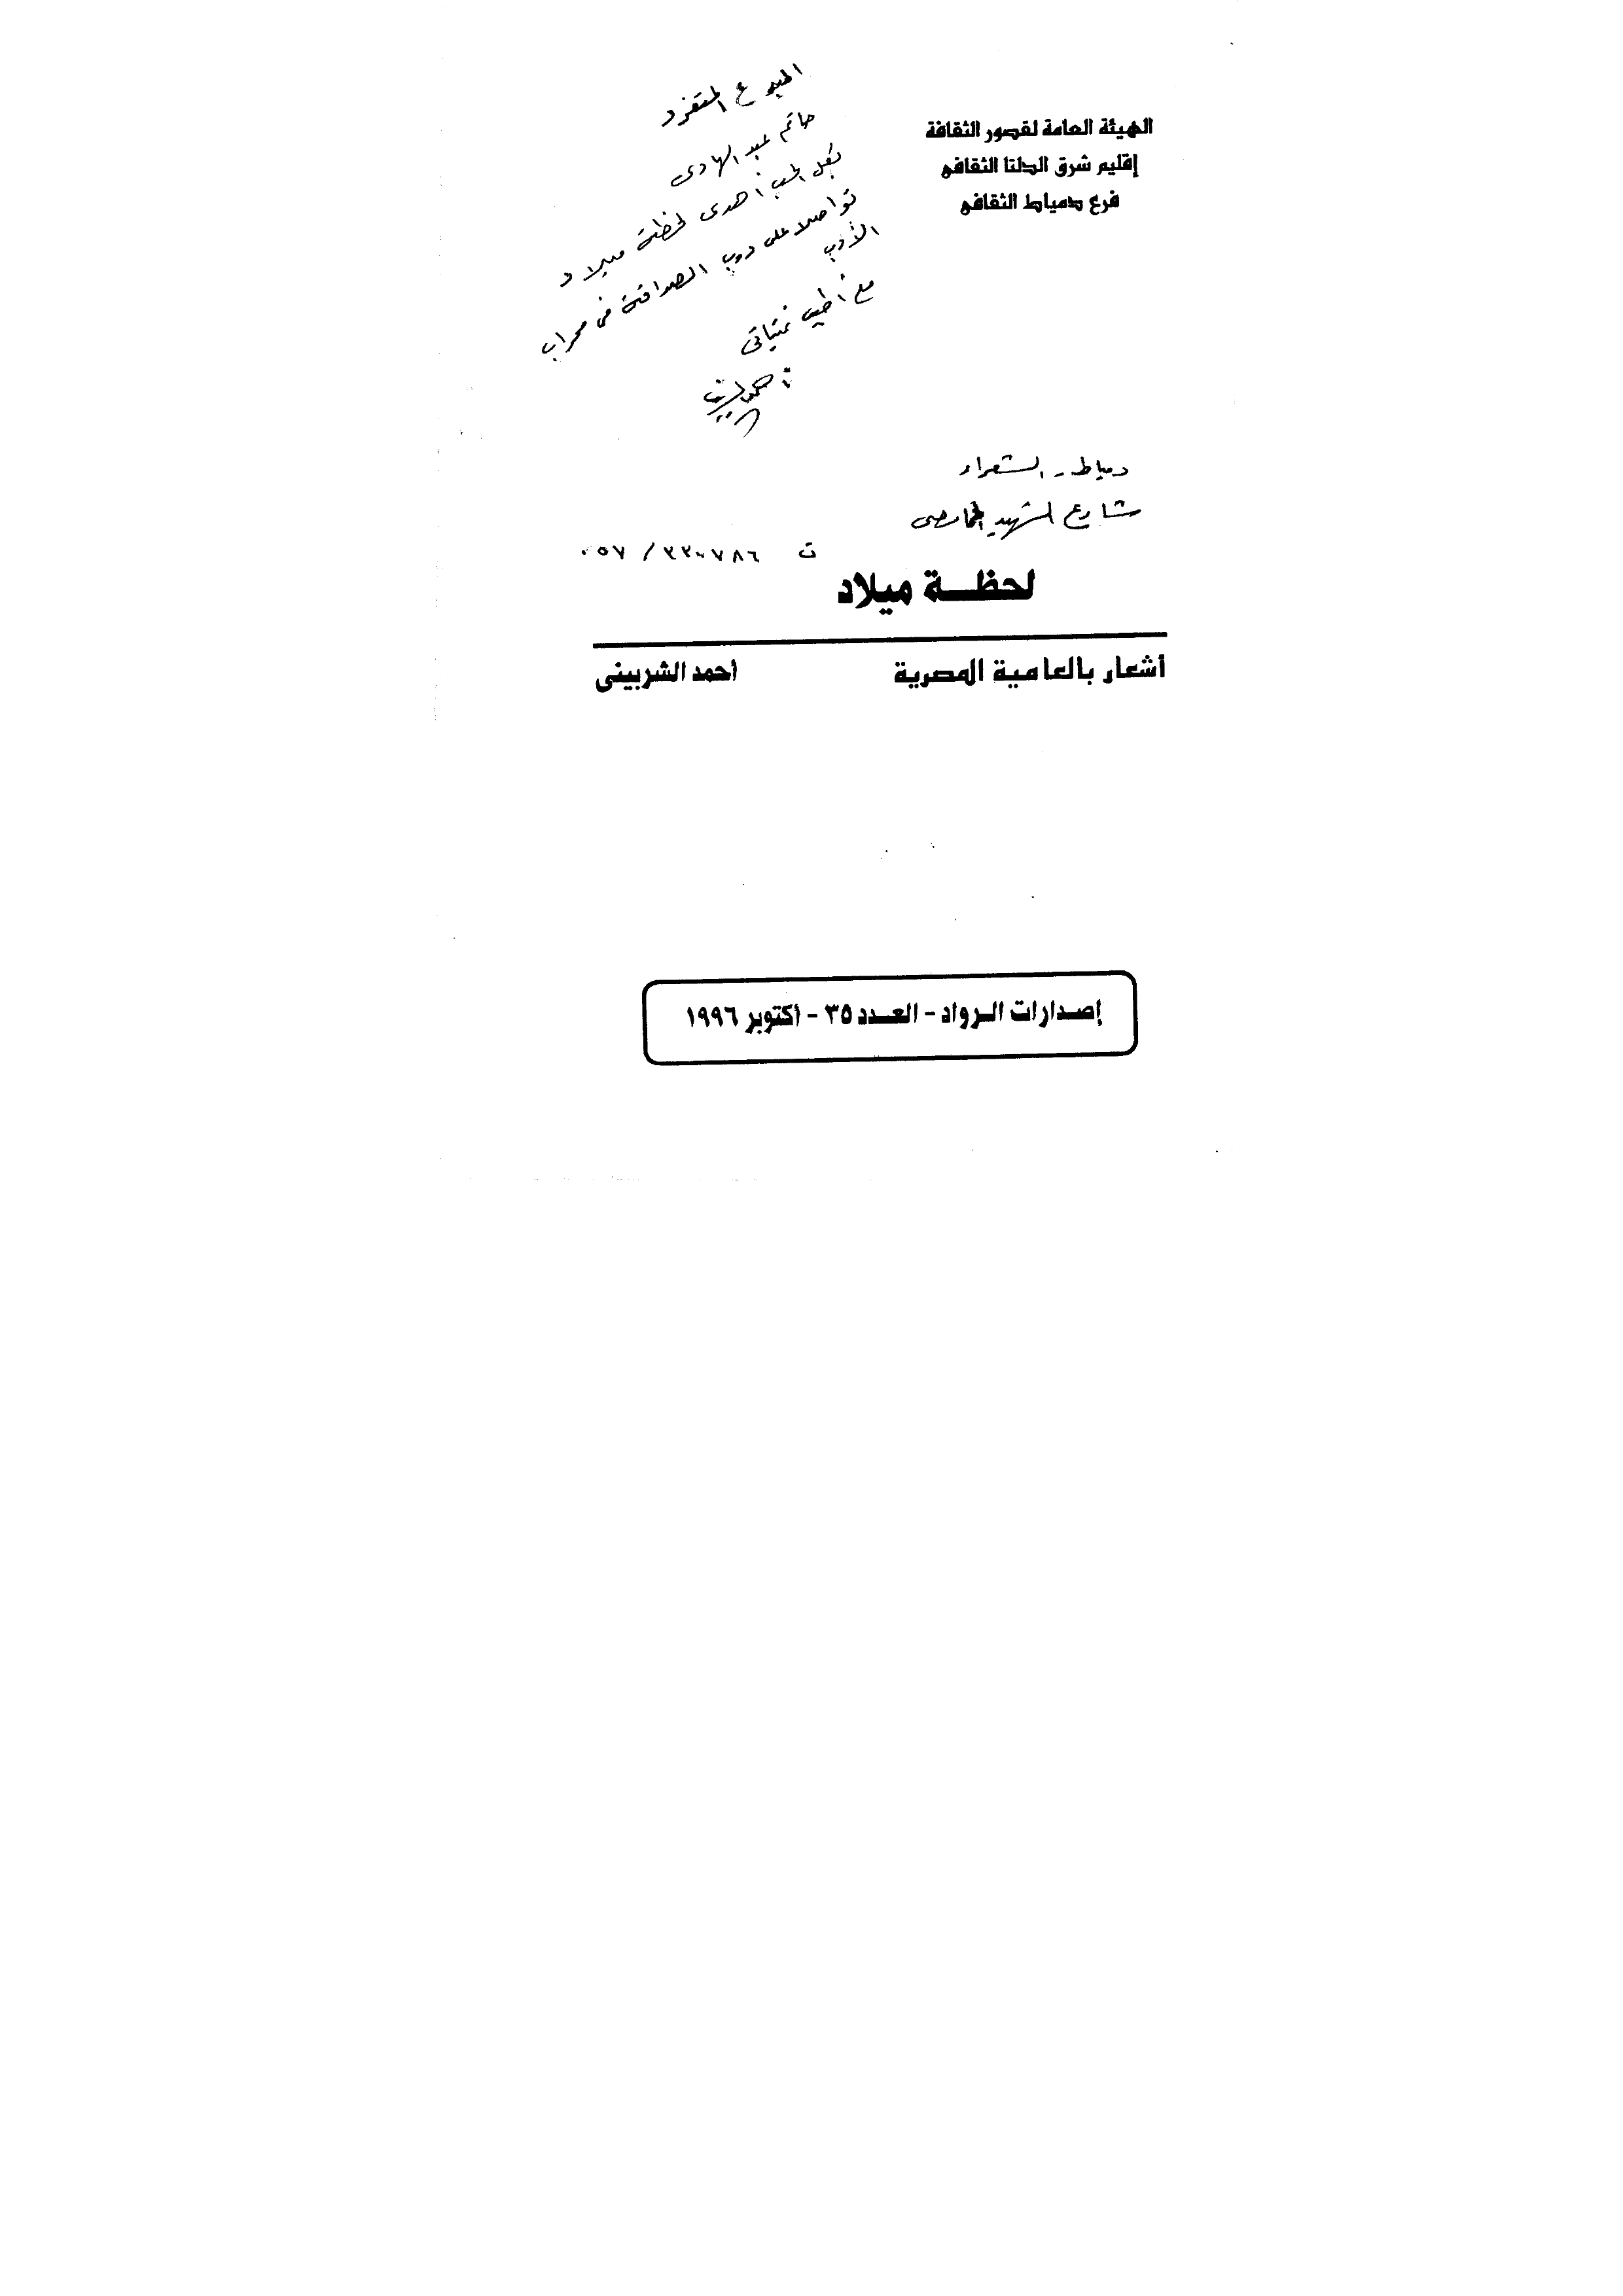 الهيئة العامة لقصور الثقافة
إقليم شرق الدلتا الثقافى
فرع دمياط الثقافى
المبدع المتفرد
حاتم عبد الهادى
بكل الحب أهدى لحظة ميلاد
تواصلا على درب الصداقة فى محراب
الأدب
مع أطيب تمنياتى
أحمد الشربينى
دمياط - الشعراء
شارع الشهيد
ت ٣٣٠٧٨٦ / ٠٥٧
لحظة ميلاد
أشعار بالعامية المصرية
أحمد الشربينى
إصدارات الرواد - العدد ٣٥ - أكتوبر ١٩٩٦